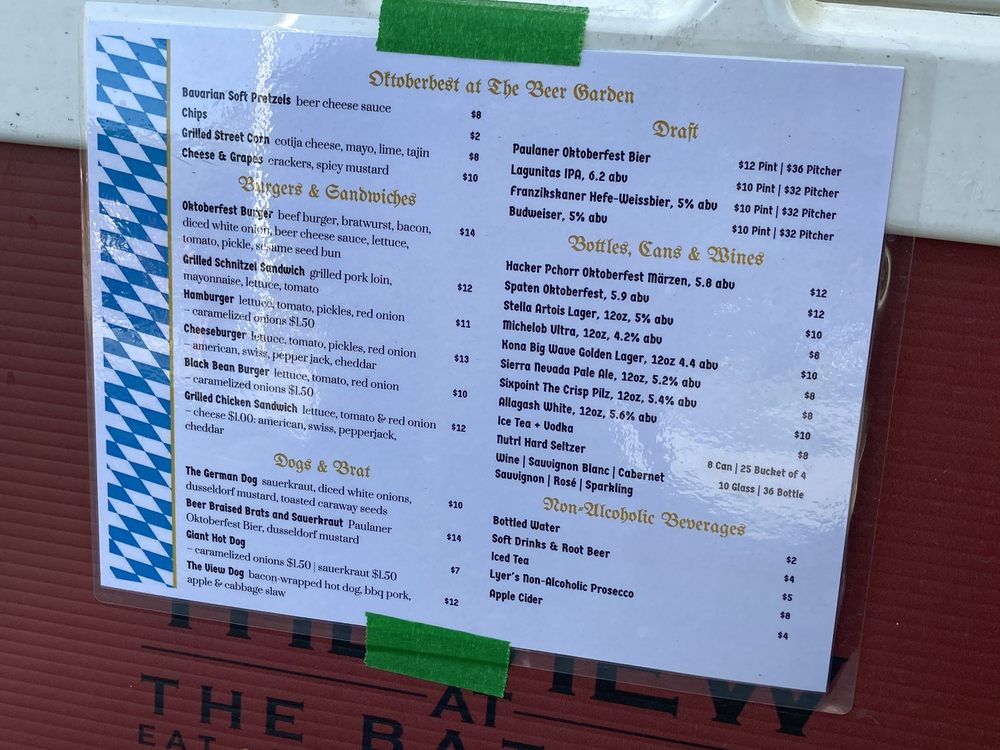 Oktoberbest at The Beer Garden
Bavarian Soft Pretzels beer cheese sauce $8
Chips $2
Grilled Street Corn cotija cheese, mayo, lime, tajin $8
Cheese & Grapes crackers, spicy mustard $10
Burgers & Sandwiches
Oktoberfest Burger beef burger, bratwurst, bacon,
diced white onion, beer cheese sauce, lettuce, $14
tomato, pickle, sesame seed bun
Grilled Schnitzel Sandwich grilled pork loin,
mayonnaise, lettuce, tomato $12
Hamburger lettuce, tomato, pickles, red onion
– caramelized onions $1.50 $11
Cheeseburger lettuce, tomato, pickles, red onion
– american, swiss, pepper jack, cheddar $13
Black Bean Burger lettuce, tomato, red onion
– caramelized onions $1.50 $10
Grilled Chicken Sandwich lettuce, tomato & red onion
– cheese $1.00: american, swiss, pepperjack, $12
cheddar
Dogs & Brat
The German Dog sauerkraut, diced white onions,
dusseldorf mustard, toasted caraway seeds $10
Beer Braised Brats and Sauerkraut Paulaner
Oktoberfest Bier, dusseldorf mustard $14
Giant Hot Dog
– caramelized onions $1.50 | sauerkraut $1.50 $7
The View Dog bacon-wrapped hot dog, bbq pork,
apple & cabbage slaw $12
Draft
Paulaner Oktoberfest Bier $12 Pint | $36 Pitcher
Lagunitas IPA, 6.2 abv $10 Pint | $32 Pitcher
Franziskaner Hefe-Weissbier, 5% abv $10 Pint | $32 Pitcher
Budweiser, 5% abv $10 Pint | $32 Pitcher
Bottles, Cans & Wines
Hacker Pchorr Oktoberfest Märzen, 5.8 abv $12
Spaten Oktoberfest, 5.9 abv $12
Stella Artois Lager, 12oz, 5% abv $10
Michelob Ultra, 12oz, 4.2% abv $8
Kona Big Wave Golden Lager, 12oz 4.4 abv $10
Sierra Nevada Pale Ale, 12oz, 5.2% abv $8
Sixpoint The Crisp Pilz, 12oz, 5.4% abv $8
Allagash White, 12oz, 5.6% abv $10
Ice Tea + Vodka $8
Nutrl Hard Seltzer 8 Can | 25 Bucket of 4
Wine | Sauvignon Blanc | Cabernet 10 Glass | 36 Bottle
Sauvignon | Rosé | Sparkling
Non-Alcoholic Beverages
Bottled Water $2
Soft Drinks & Root Beer $4
Iced Tea $5
Lyer's Non-Alcoholic Prosecco $8
Apple Cider $4
AT
THE
EAT